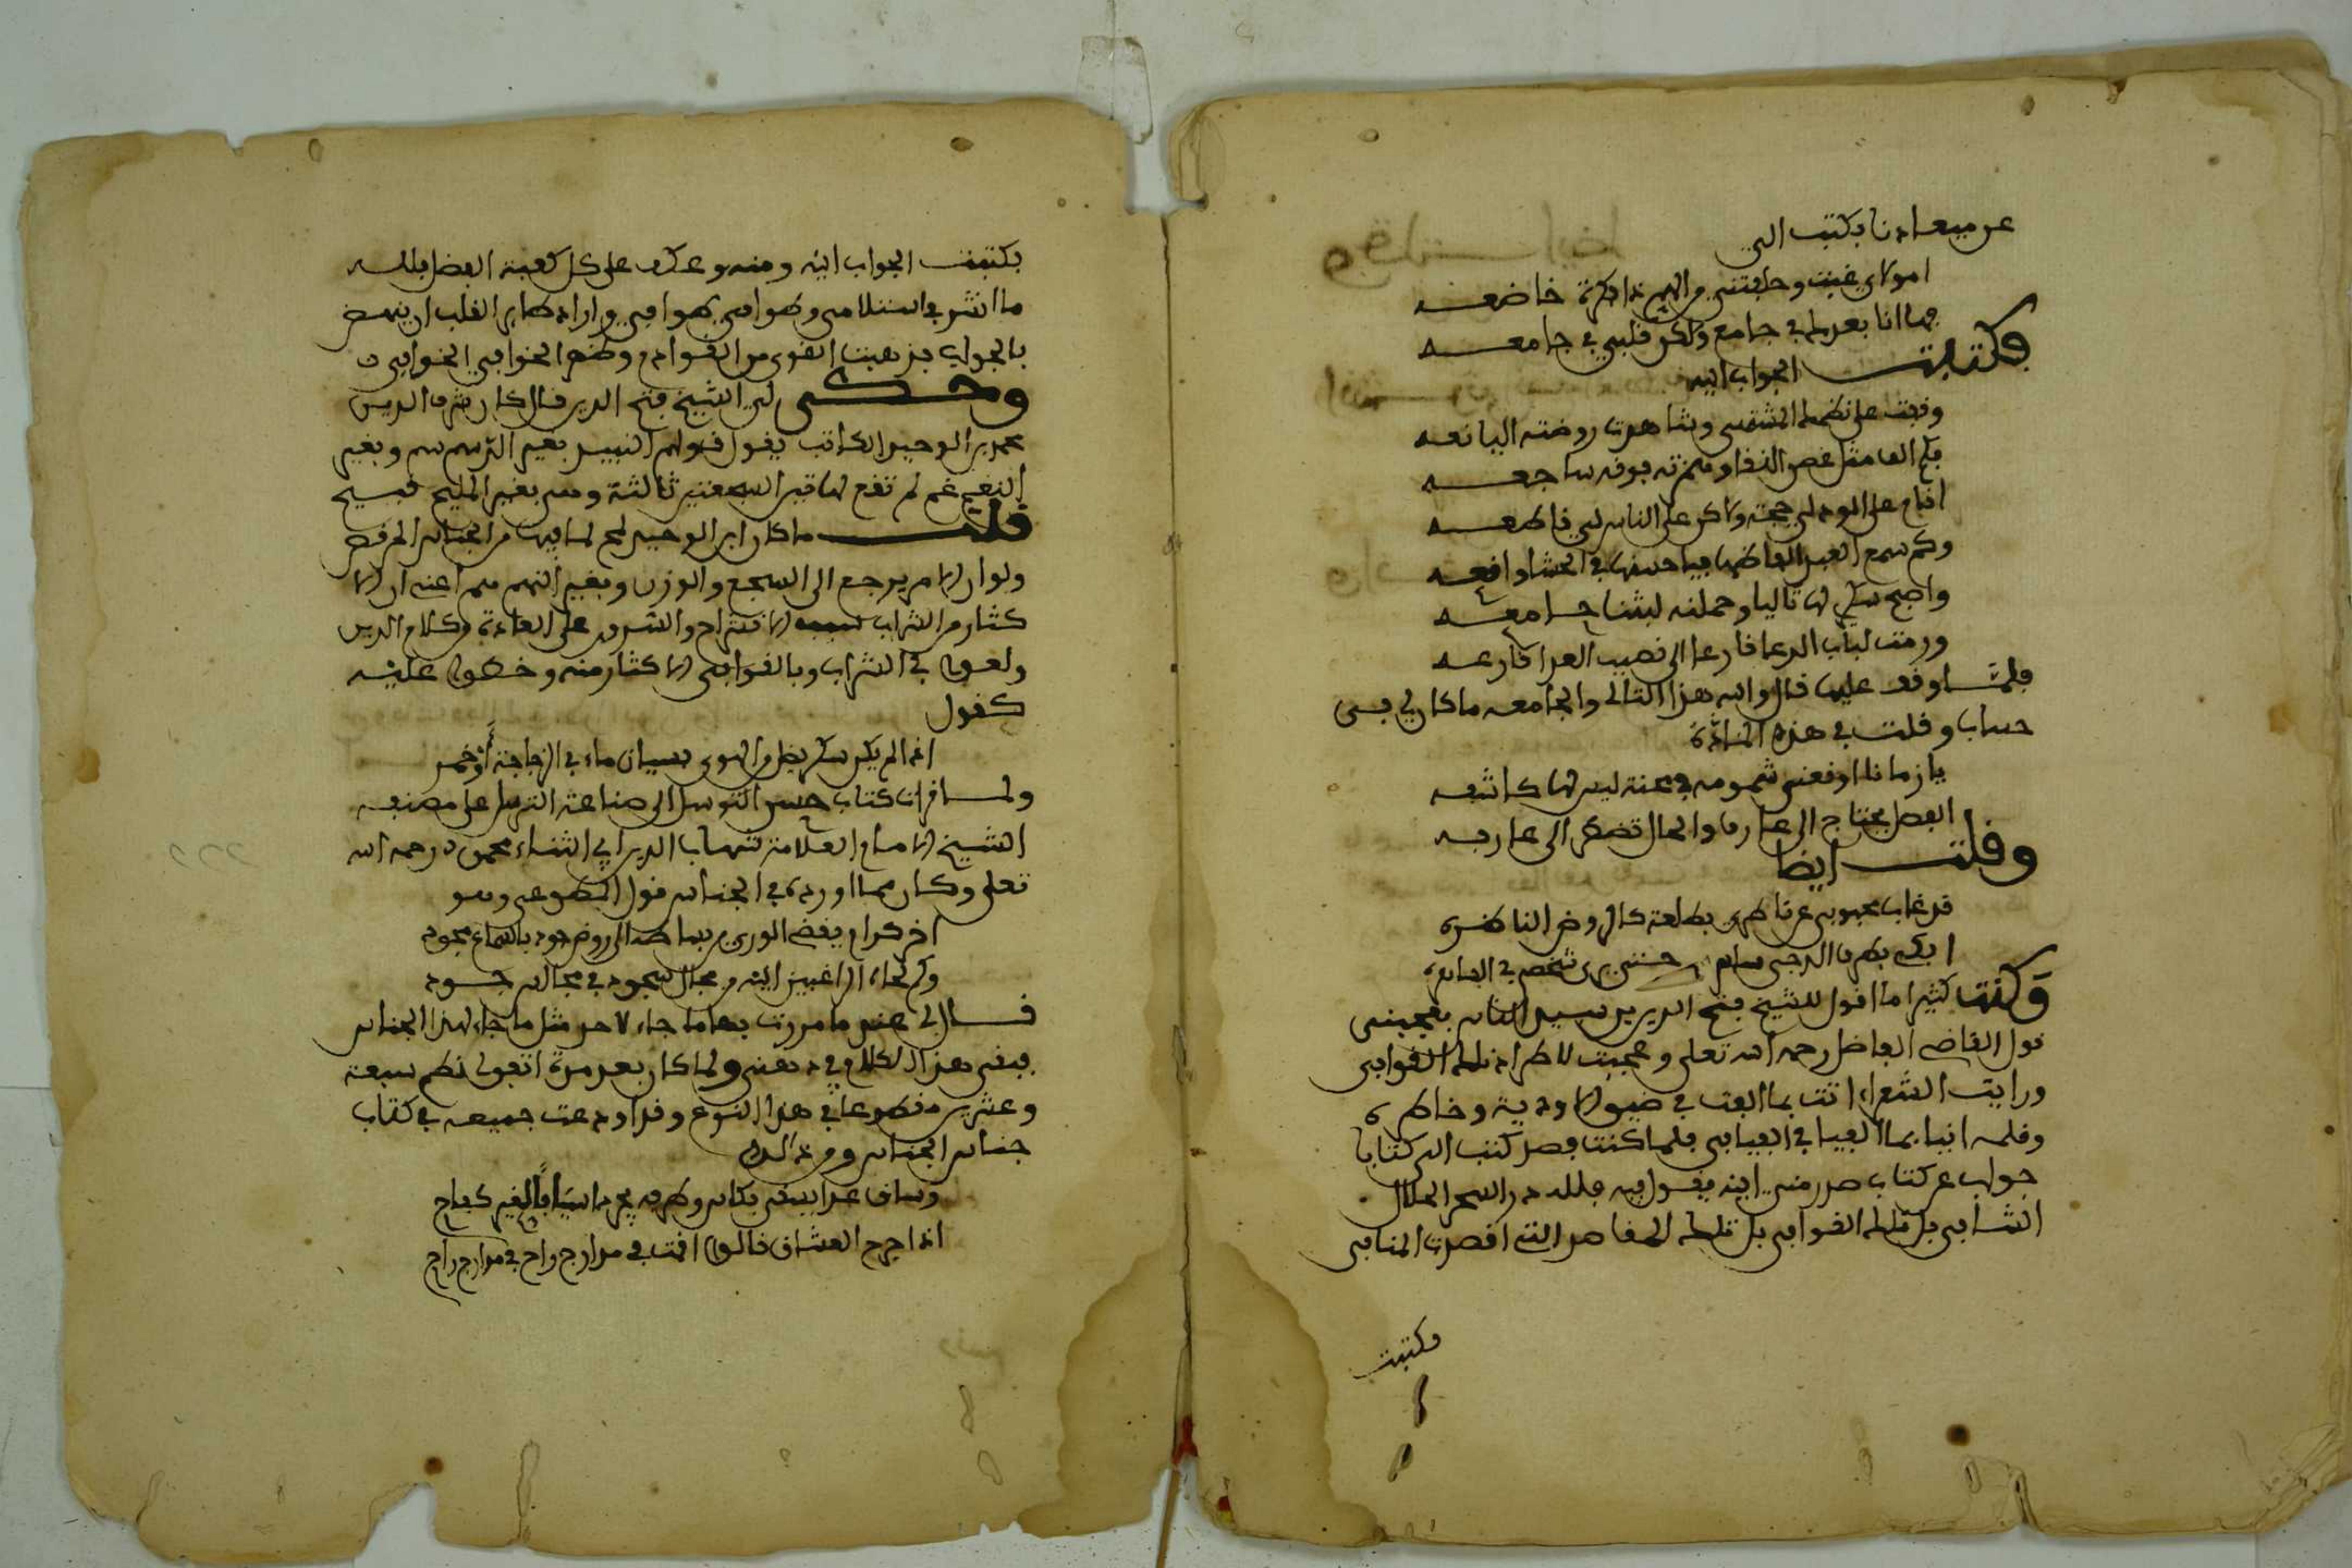 عن ميعادنا فكتب الي
امولاي غبت وخلفتني والهم ذاكرة خاضعه
فما انا بعدك في جامع ولكن قلبي في جامعه
فكتبت الجواب اليه
وقفت على نظمك المشتهى وشاهدت روضته اليانعه
فكم الف مثل غصن النقا وهمزته فوقه ساجعه
اقام على الود لي حجة ولكن على الناس لي قاطعه
وكم سمع العبد الفاظها فيا حسنها في الحشا واقعه
واصبح شكري لها تاليا وحملته لبثنا جامعه
ورمت لباب الدعا قارعا الى نصيب العدا قارعه
فلما وقف عليها قال والله هذا التالي والجامعه ما كان لي في
حساب وقلت في هذه المادة
يا زمانا اوقعني شومه في محنة ليس لها كاشفه
الفضل يحتاج الى عارف والحال تضطر الى عارفه
وقلت ايضا
قد غاب محبوبي عن ناظري بطلعة كالروض الناضره
ابكي بطرف الدجى ساهر حتى يرى شخصي في الساهره
وكنت كثيرا ما اقول للشيخ فتح الدين بن سيد الناس يعجبني
قول القاضي الفاضل رحمه الله تعلى وعجبت لاطراد تلك القوافي
ورايت الشعراء اتت بما الفت في ضيق الاودية وخاطره
وقلمه اتيا بما الفيا في الفيافي فلما كنت بصفد كتب الي كتابا
جواب عن كتاب صدر مني اليه يقول فيه فلله در السحر الحلال
الشافي بل تلك القوافي بل تلك المقاصد التي اقصدت المنافي
فكتبت
فكتبت الجواب اليه ومنه وعكف على كل كعبة الفضل فلله
ما انشر في استلامي وطوافي بطوافي واراد طاير القلب ان ينهض
بالجواب فذهبت القوى من القوادم وظهر الخوافي الخوافي
وحكى لي الشيخ فتح الدين قال كان شرف الدين
محمد بن الوحيد الكاتب يقول قولهم النبيذ بغير الدسم سم وبغير
النغم غم لم تقع لهاتين السجعتين ثالثة وهي بغير المليح قبيح
قلت ما كان ابن الوحيد لمح لما فيها من الجناس المرقص
ولو ان الامر يرجع الى السجع والوزن وبغير النهم هم اعني ان الا
كثار من الشراب سبب الافتراح والسرور على العادة في كلام الذين
ولعوا في الشراب وبالغوا في الاكثار منه وحضوا عليه
كقول
اذا لم يكن سكر يضل عن الهوى فسيان ماء في الزجاجة او خمر
ولما قرات كتاب حسن التوسل الى صناعة الترسل على مصنفه
الشيخ الامام العلامة شهاب الدين ابي الثناء محمود رحمه الله
تعلى وكان مما اورده في الجناس قول المطوعي وهو
اخو كرم يفضي الورى من بساطه الى روض مجد بالسماح مجود
وكم لجباه الراغبين اليه من مجال سجود في مجالس جود
قال لي عند ما مررت بها ما جاء لاحد مثل ما جاء لهذا الجناس
فبقي هذا الكلام في ذهني ولما كان بعد مدة اتفق لي نظم سبعة
وعشرين مقطوعا في هذا النوع وقد اودعت جميعه في كتاب
جنان الجناس ومن ذلك
وساق غدا يسعى بكاس وطرفه يجرد اسيافا لغير كفاح
اذا جرح العشاق قالوا اقمت في مدارج راح في مدارج راح